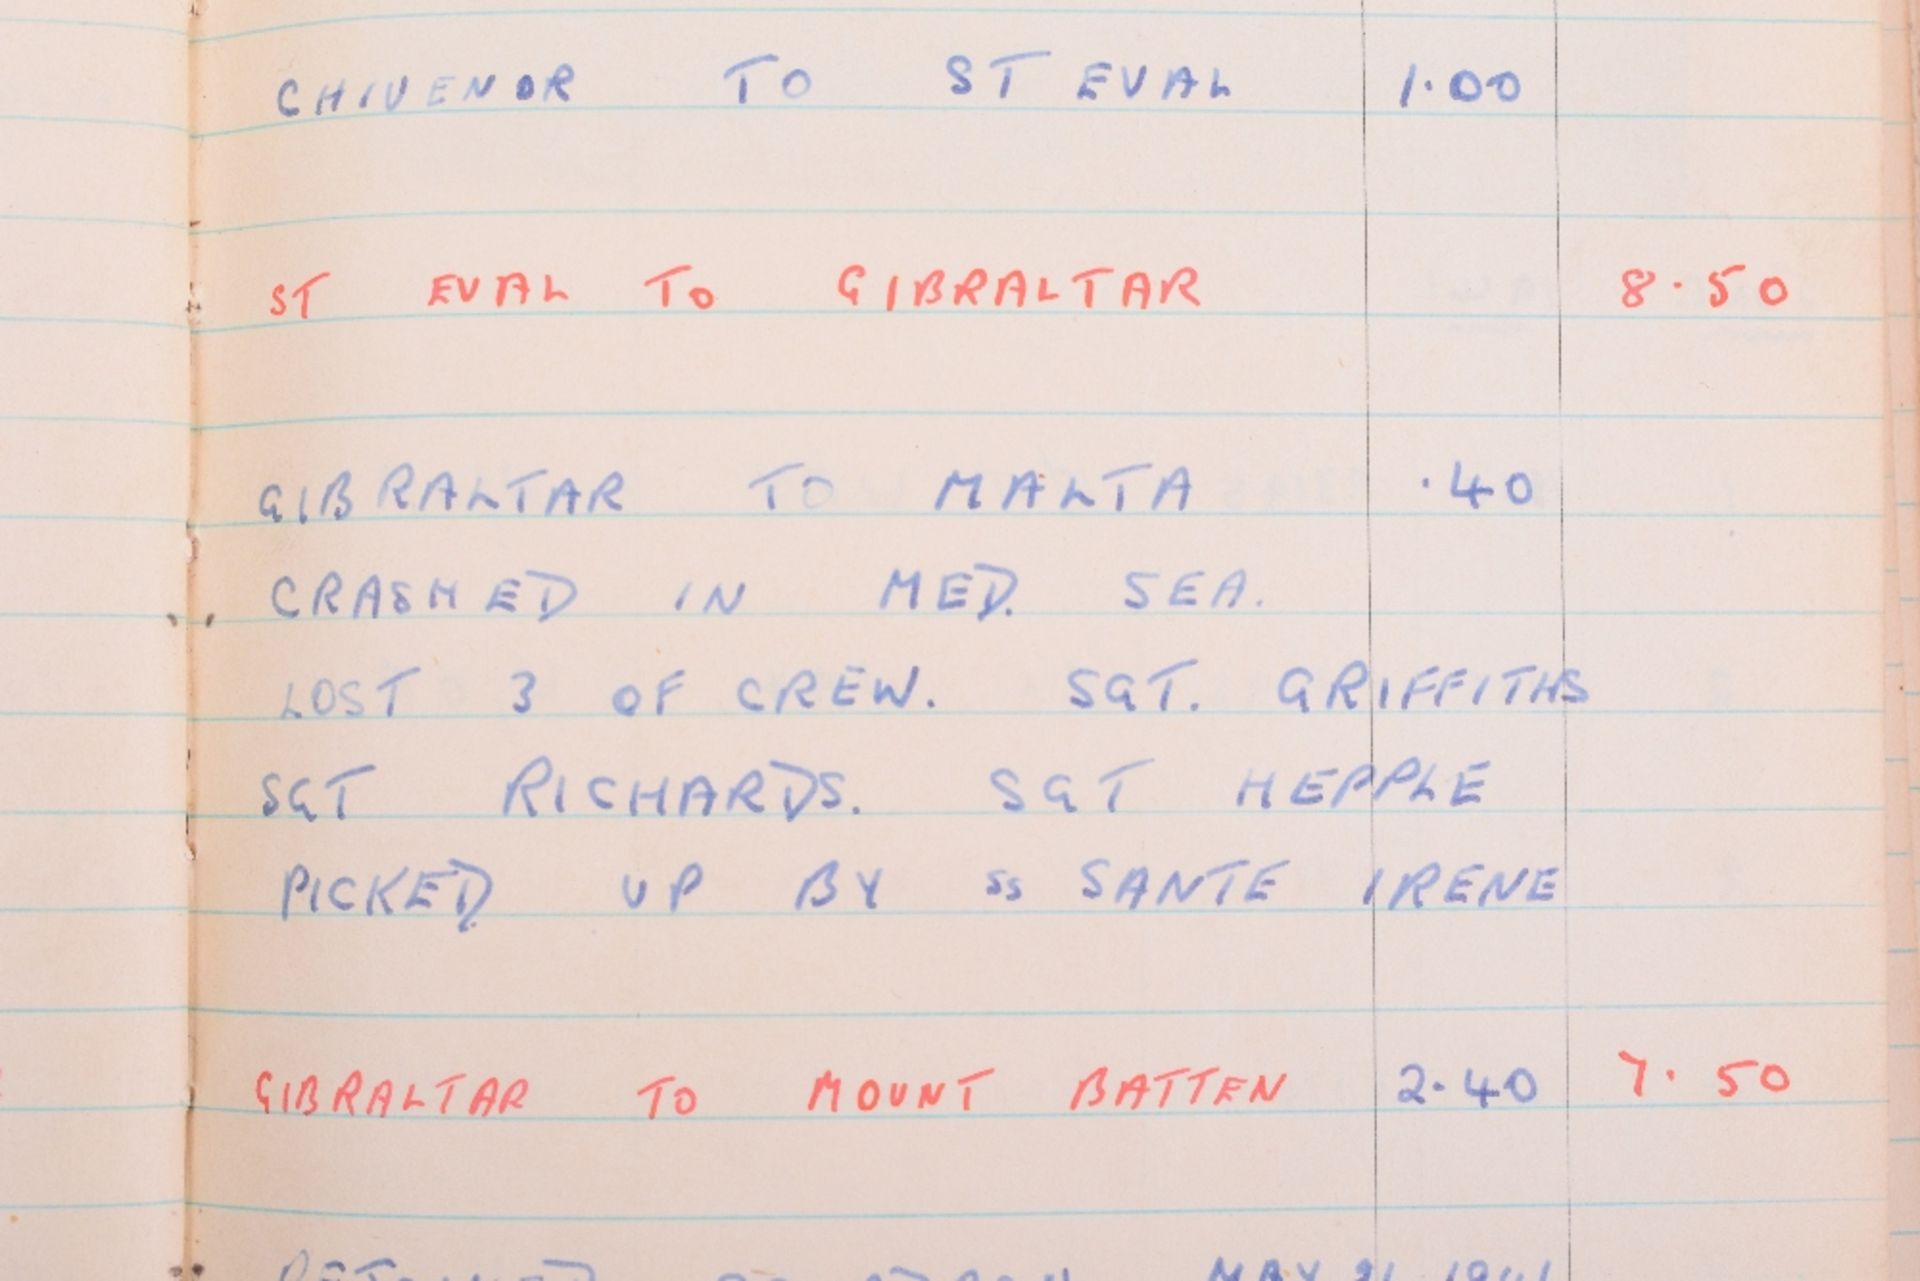 CHIVENOR TO ST EVAL 1.00
ST EVAL TO GIBRALTAR 8.50
GIBRALTAR TO MALTA .40
CRASHED IN MED. SEA.
LOST 3 OF CREW. SGT. GRIFFITHS
SGT RICHARDS. SGT HEPPLE
PICKED UP BY SS SANTE IRENE
GIBRALTAR TO MOUNT BATTEN 2.40 7.50
MAY 1941